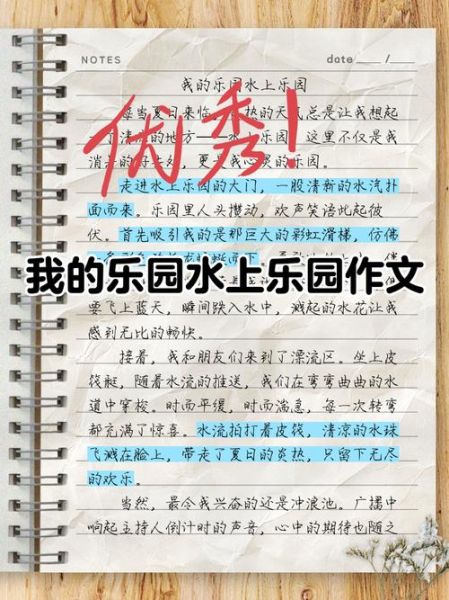 NOTES date __/__
我的乐园水上乐园
优秀!
每当夏日来临，热的天气总是让我想起
清的地方——水乐园。这里不仅是我
消的好去处，更是我心灵的乐园。
走进水上乐园的大门，一股清新的水汽扑
面而来。乐园里人头攒动，欢声笑语此起彼
伏。首先吸引我的是那巨大的彩虹滑梯，仿佛
我的乐园水上乐园作文
要飞上蓝天，瞬间跌入水中，溅起的水花让我
感到无比的畅快。
接着，我和朋友们来到了漂流区。坐上皮
筏艇，随着水流的推送，我们在弯弯曲曲的水
道中穿梭。时而平缓，时而湍急，每一次转弯
都充满了惊喜。水流拍打着皮筏，清凉的水珠
飞溅在脸上，带走了夏日的炎热，只留下无尽
的欢乐。
当然，最令我兴奋的还是冲浪池。广播中
响起主持人倒计时的声音，心中的期待也随之